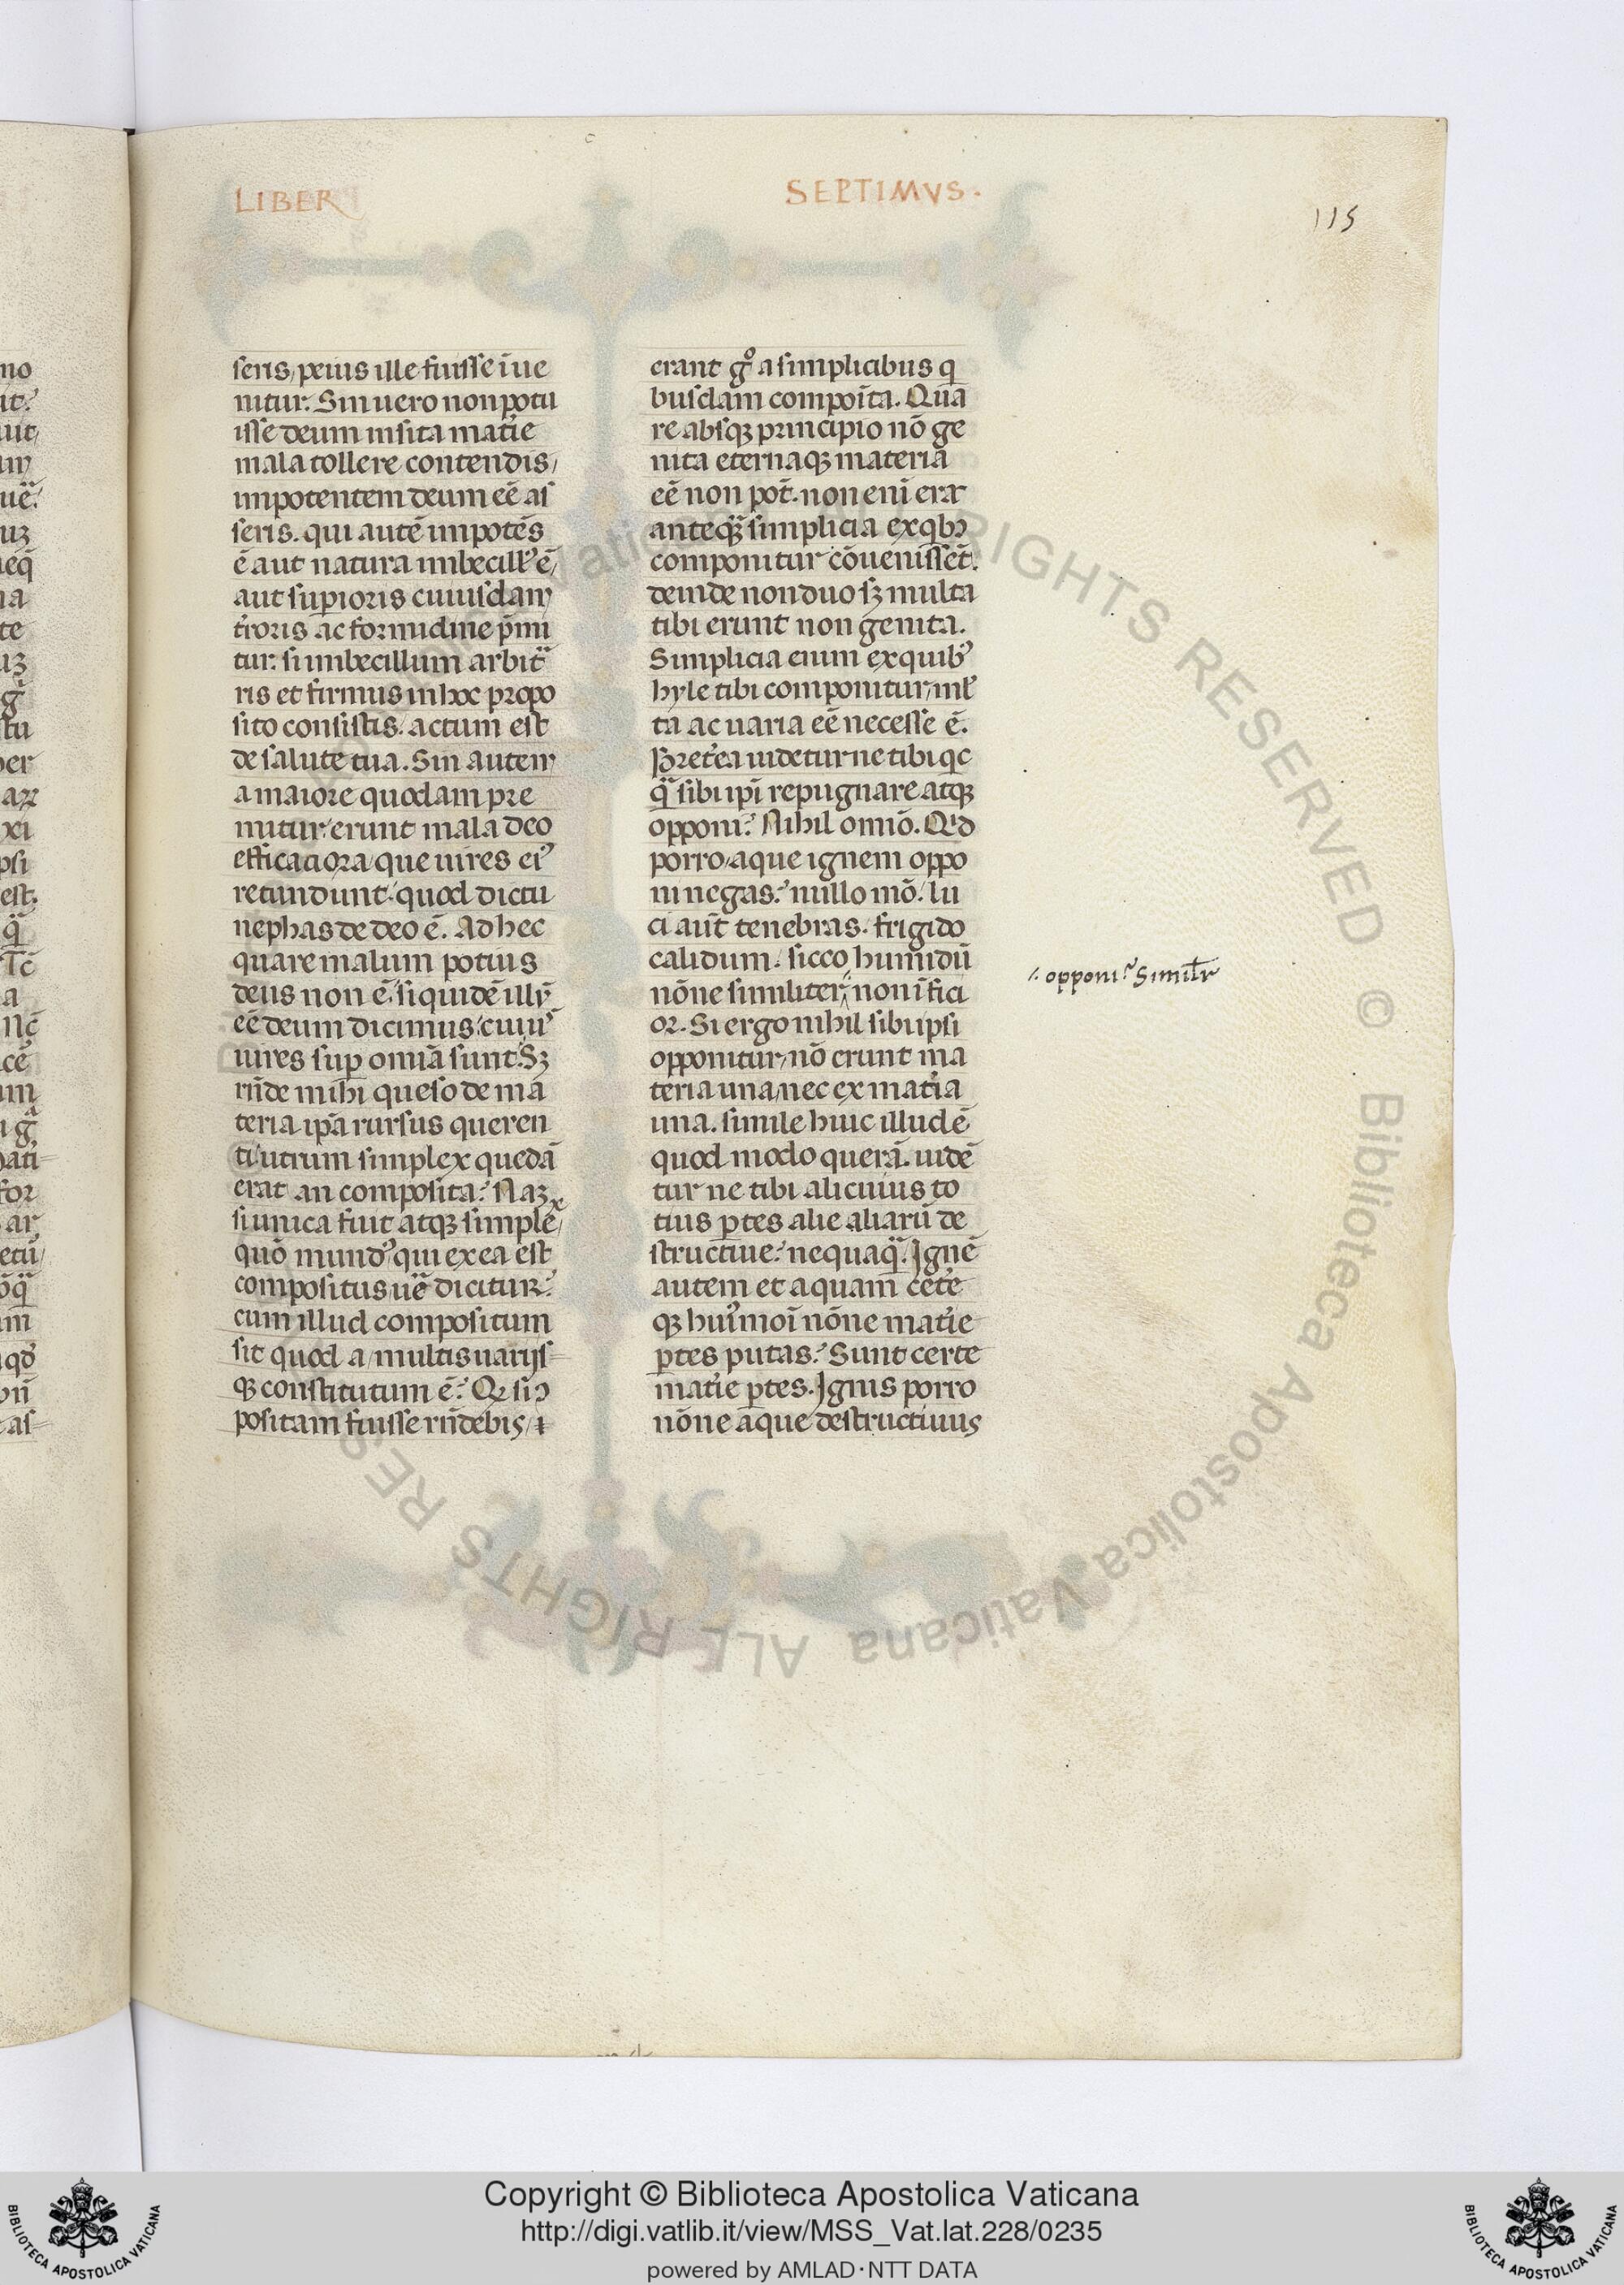 LIBER
SEPTIMVS.
115
seris, peius ille fuisse īue
nitur. Sin uero non potu
isse deum insita mat̉ie
mala tollere contendis,
impotentem deum eē as
seris. qui autē impotēs
ē aut natura imbecill᾽ ē,
aut sup̱ioris cuiusdam
t̉roris ac formidine p̄mi
tur. si imbecillum arbit͛
ris et firmus in hoc propo
sito consistis. actum est
de salute tua. Sin autem
a maiore quodam pre
mitur. erunt mala deo
efficaciora que uires ei᾽
retundunt. quod dictu
nephas de deo ē. Ad hec
quare malum potius
deus non ē. siquidē illū
eē deum dicimus. cuiu᾽
uires sup̱ omīa sunt. Sꝫ
rn̄de mihi queso de ma
teria ip̄a rursus queren
ti utrum simplex quedā
erat an composita? Naꝫ
si unica fuit atqꝫ simplex,
quō mund᾽ qui ex ea est
compositus ue͛ dicitur?
cum illud compositum
sit quod a multis uarijs
qꝫ constitutum ē? Qꝫ si ꝯ
positam fuisse rn̄debis,
erant gͦ a simplicibus q
busdam compoīta. Qua
re absqꝫ principio nō ge
nita eternaqꝫ materia
eē non pot̄. non enī erat
anteq͛ simplicia ex qbꝫ
componitur cōuenissēt.
deinde non duo sꝫ multa
tibi erunt non genita.
Simplicia enim ex quib᾽
hyle tibi componitur, ml᾽
ta ac uaria eē necesse ē.
Pret̉ea uideturne tibi qc
q͛ sibi ipī repugnare atqꝫ
opponi? Nihil omō. Qd
porro, aque ignem oppo
ni negas? nullo mō. lu
ci aut̄ tenebras. frigido
calidum. sicco humidū
nōne similiter, non īfici
or. Si ergo nihil sibi ipsi
opponitur, nō erunt ma
teria una, nec ex mat̉ia
una. simile huic illud ē
quod modo querā. uidē
tur ne tibi alicuius to
tius ꝑtes alie aliarū de
structiue? nequaq͛. Ignē
autem et aquam cet̉e
qꝫ hui᾽moī nōne mat̉ie
ꝑtes putas? Sunt certe
mat̉ie ꝑtes. Ignis porro
nōne aque destructiuus
opponi? Similr̄
Copyright © Biblioteca Apostolica Vaticana
http://digi.vatlib.it/view/MSS_Vat.lat.228/0235
powered by AMLAD·NTT DATA
BIBLIOTECA APOSTOLICA VATICANA
BIBLIOTECA APOSTOLICA VATICANA